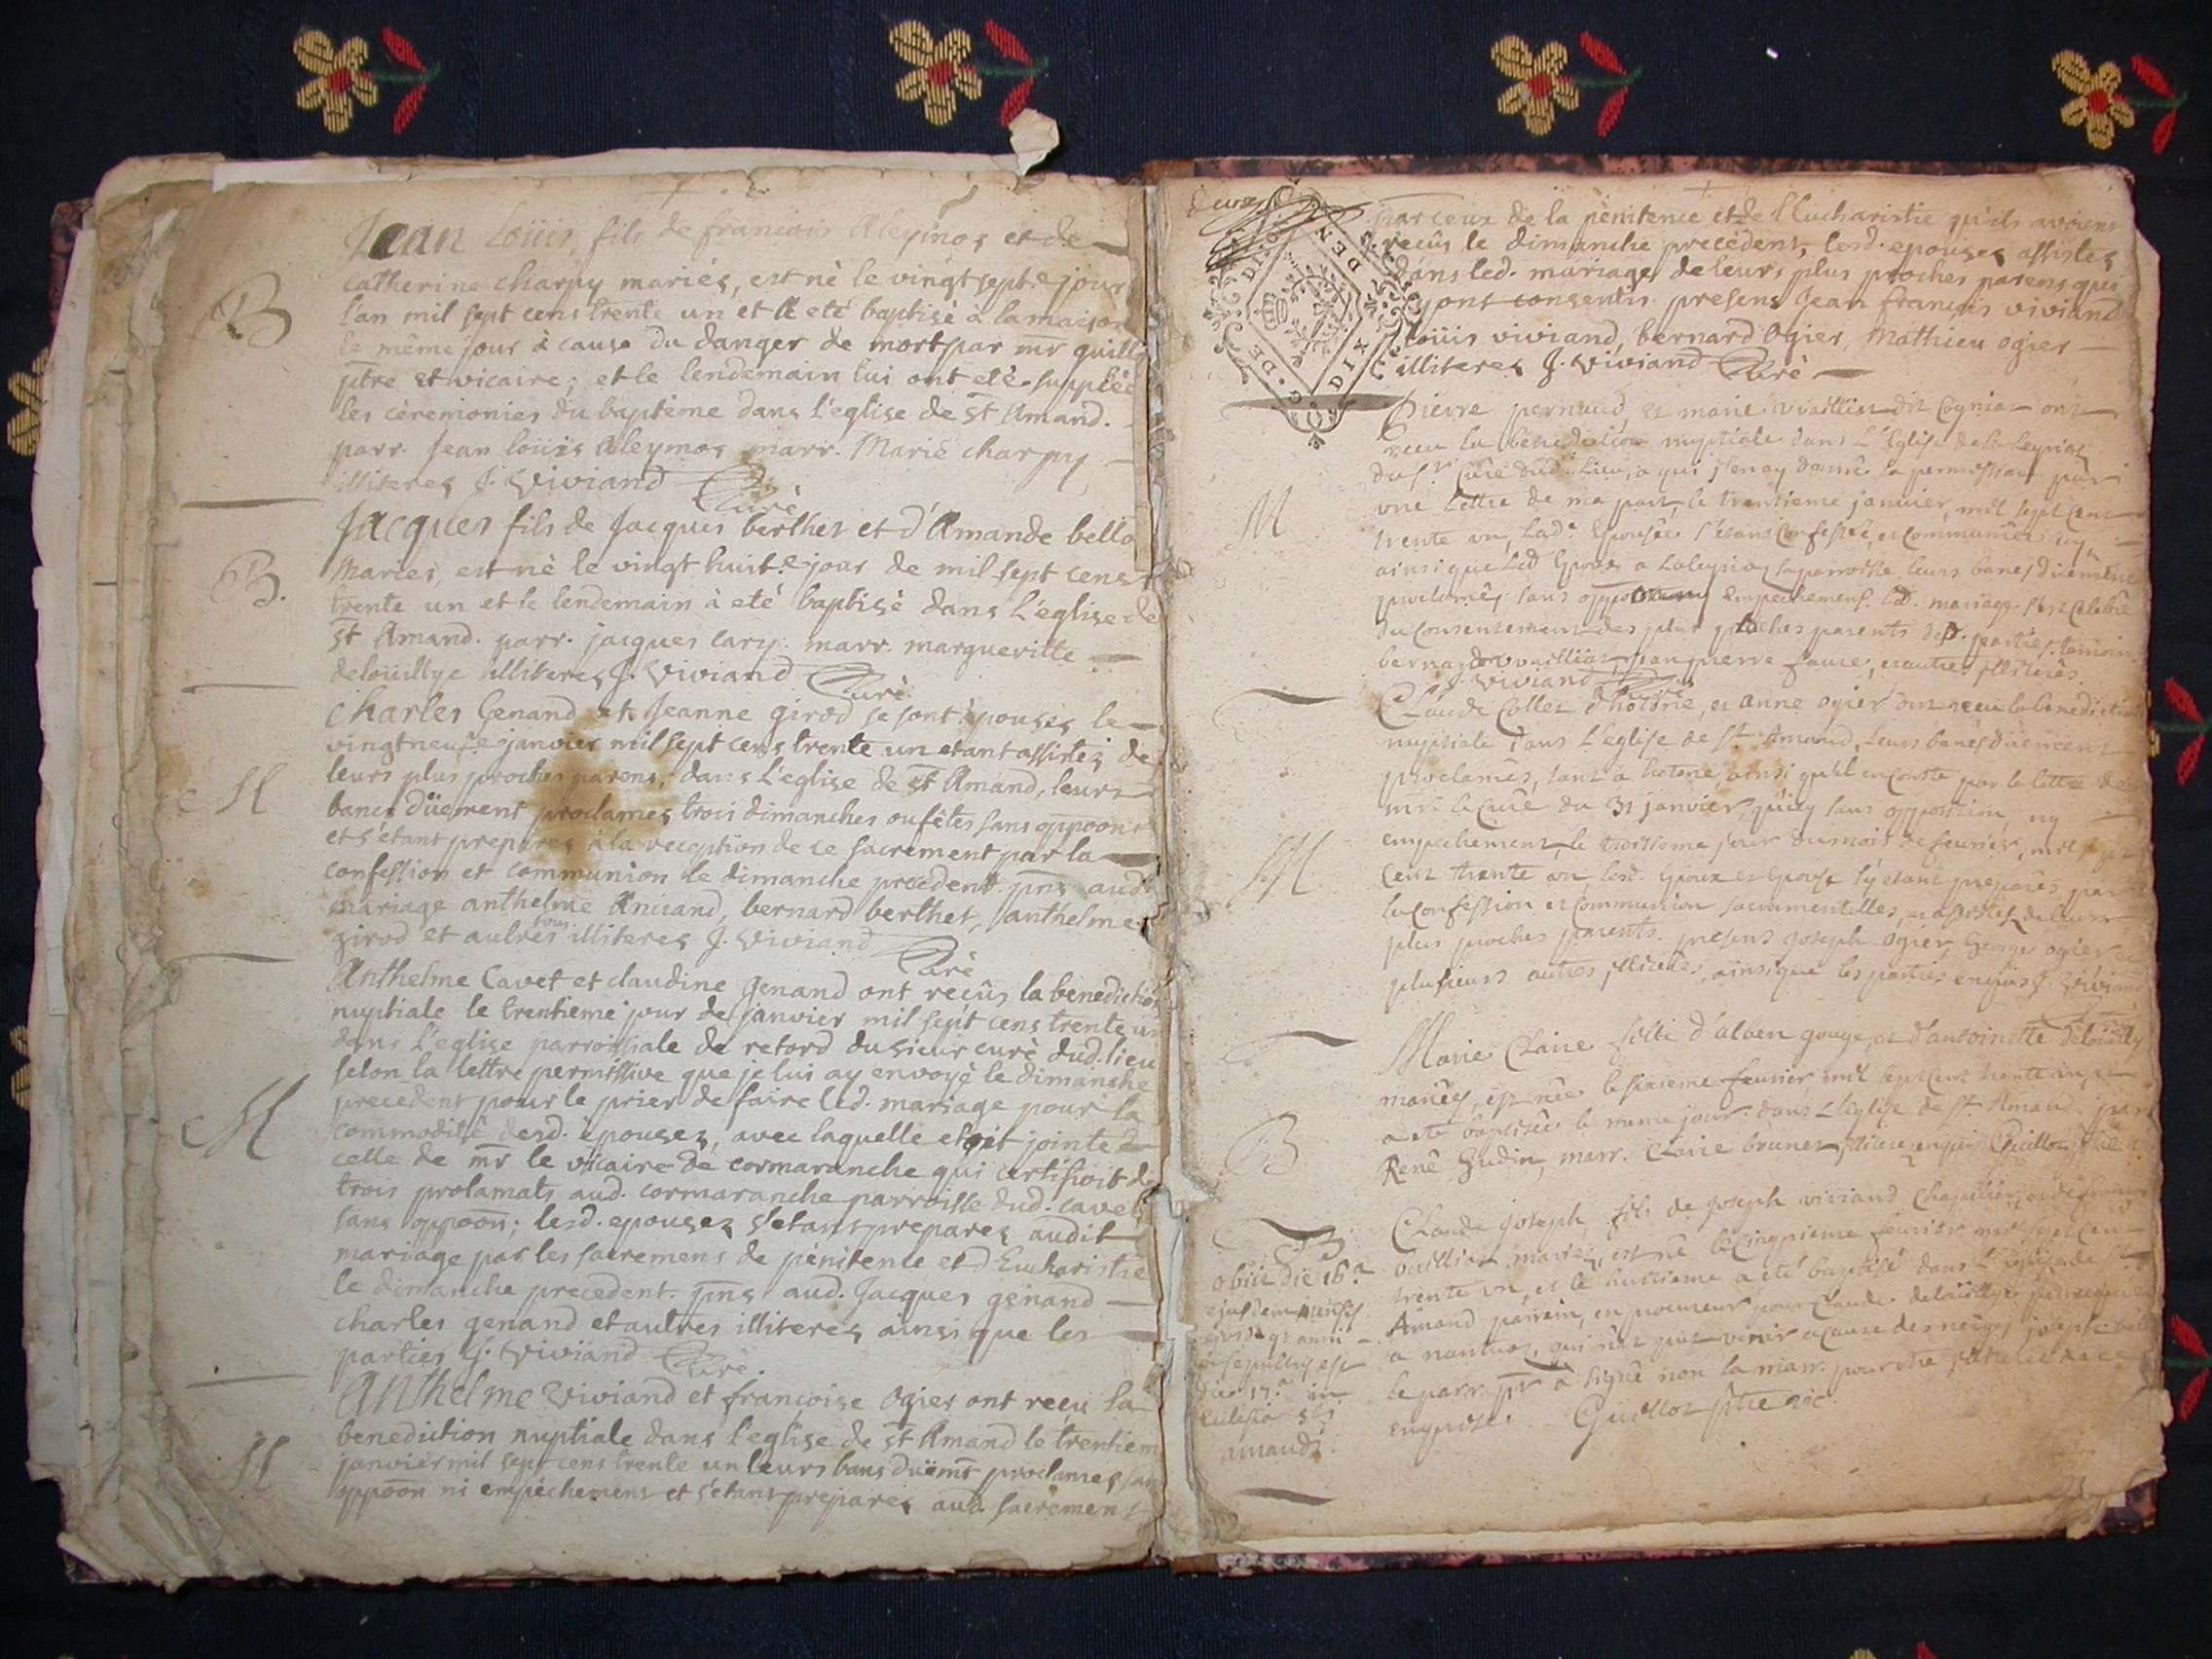 Jean Loüis, fils de francois Aleymos et de
B
catherine charpy mariés, est né le vingt sept.e jour
l'an mil sept cens trente un et a eté baptisé à la maison
le même jour à cause du danger de mort par mr guillo
ptre et vicaire; et le lendemain lui ont eté suppléé
les cèremonies du baptème dans l'eglise de st Amand.
parr. Jean loüis Aleymos marr. Marie charpy
illiteres J. Viviand Curè
Jacques fils de Jacques berthet et d'Amande bello
B.
Mariés, est nè le vingt huit.e jour de mil sept cens
trente un et le lendemain à eté baptisé dans l'eglise de
st Amand. parr. jacques cary. marr. margueritte
deloüillye illiteres J. Viviand Curè
Charles Genand et Jeanne girod se sont èpousez le
vingt neuf.e janvier mil sept cens trente un etant assistez de
leurs plus proches parens, dans l'eglise de st Amand, leurs
M
bancs düement proclames trois dimanches ou fêtes sans oppoon
et s'étant preparez à la reception de ce sacrement par la
confession et communion le dimanche precedent. pns aud.
mariage anthelme Anciand, bernard berthet, anthelme
girod et autres tous illiteres J. Viviand Curè
Anthelme Cavet et claudine genand ont reçûs la benediction
nuptiale le trentieme jour de janvier mil sept cens trente un
dans l'eglise parroissiale de retord du sieur curè dud. lieu
selon la lettre permissive que je lui ay envoyè le dimanche
precedent pour le prier de faire led. mariage pour la
M
commodité desd. èpousez, avec laquelle etoit jointe
celle de mr le vicaire de cormaranche qui certifioit de
trois prolamats aud. cormaranche parroisse dud. cavet
sans oppoon; lesd. epousez s'etans preparez audit
mariage par les sacremens de pènitence et d'Eucharistie
le dimanche precedent. pns aud. Jacques genand
charles genand et autres illiteres ainsi que les
parties J. Viviand Curè.
Anthelme Viviand et francoise Ogier ont reçu la
benediction nuptiale dans l'eglise de st Amand le trentiem
M
janvier mil sept cens trente un leurs bans düemt proclames san
oppoon ni empèchemens et s'étans preparez aud. sacremens
deux
G. DE DIJON
DIX DEN
par ceux de la pènitence et de l'Eucharistie qu'ils avoient
reçûs le dimanche precèdent, lesd. epousez assistez
dans led. mariage de leurs plus proches parens qui
y ont consentis. presens Jean francois viviand
loüis viviand, bernard Ogier, Mathieu ogier
illiteres J. Viviand Curè
Pierre pernaud, et marie vuillier dit Cognias ont
receu la benediction nuptiale dans L'Eglise de la Leyriaz
du Sr. Curé dud. Lieu, a qui j'en ay donné la permission par
M
une Lettre de ma part, le trentieme janvier, mil sept cent
trente un, Lad. Epousée s'étant confessée, et communiée icy
ainsi que Led Epoux a Laleyriaz sa parroisse leurs bancs düement
proclamés sans opposition empechement. Led. mariage s'est celebré
du consentement des plus proches parents des parties. temoin
bernard vuillier, jean pierre faure, et autres illiterés.
J. Viviand Curé
Claude Collet d'hotone, et anne ogier ont receu la benediction
nuptiale dans L'eglise de st Amand, Leurs bancs düement
proclamés, tant a hotone, ainsi qu'il en conste par la lettre de
mr. le Curé du 31 janvier, qu'icy sans opposition, ny
M
empechement, le troisieme jour du mois de fevrier, mil sept
cent trente un, lesd. Epoux et Epouse s'y etant preparés par
la confession et communion sacramentelles, et assistez de leurs
plus proches parents. presens Joseph ogier, George ogier et
plusieurs autres illiterés, ainsi que les parties enquis J. Viviand
Marie Claire fille d'alben gouge, et d'antoinette deloüilly
mariés, est née le sixieme fevrier mil sept cent trente un, et
a eté baptisée le meme jour dans L'eglise de st. Amand. parr
B
René Gudin, marr. Claire brunet, illitere enquis Guillot ptre v.
Claude joseph, fils de joseph viviand Chapellier, et de franc
B
obiit die 16.a
ejusdem mensis
vuillier mariez, est né le cinquieme fevrier mil sept cent
trente un, et le huitieme a eté baptisé dans L'eglise de st
Amand parrain, en procureur pour Claude deloüillye perruquier
a nantuaz, qui n'at put venir a cause des neiges joseph
et sepultus est
die 17.a in
Ecclesia sti
amandi.
le parr. pr a signé non la marr. pour etre illiterée de ce
enquise. Guillot ptre vic.